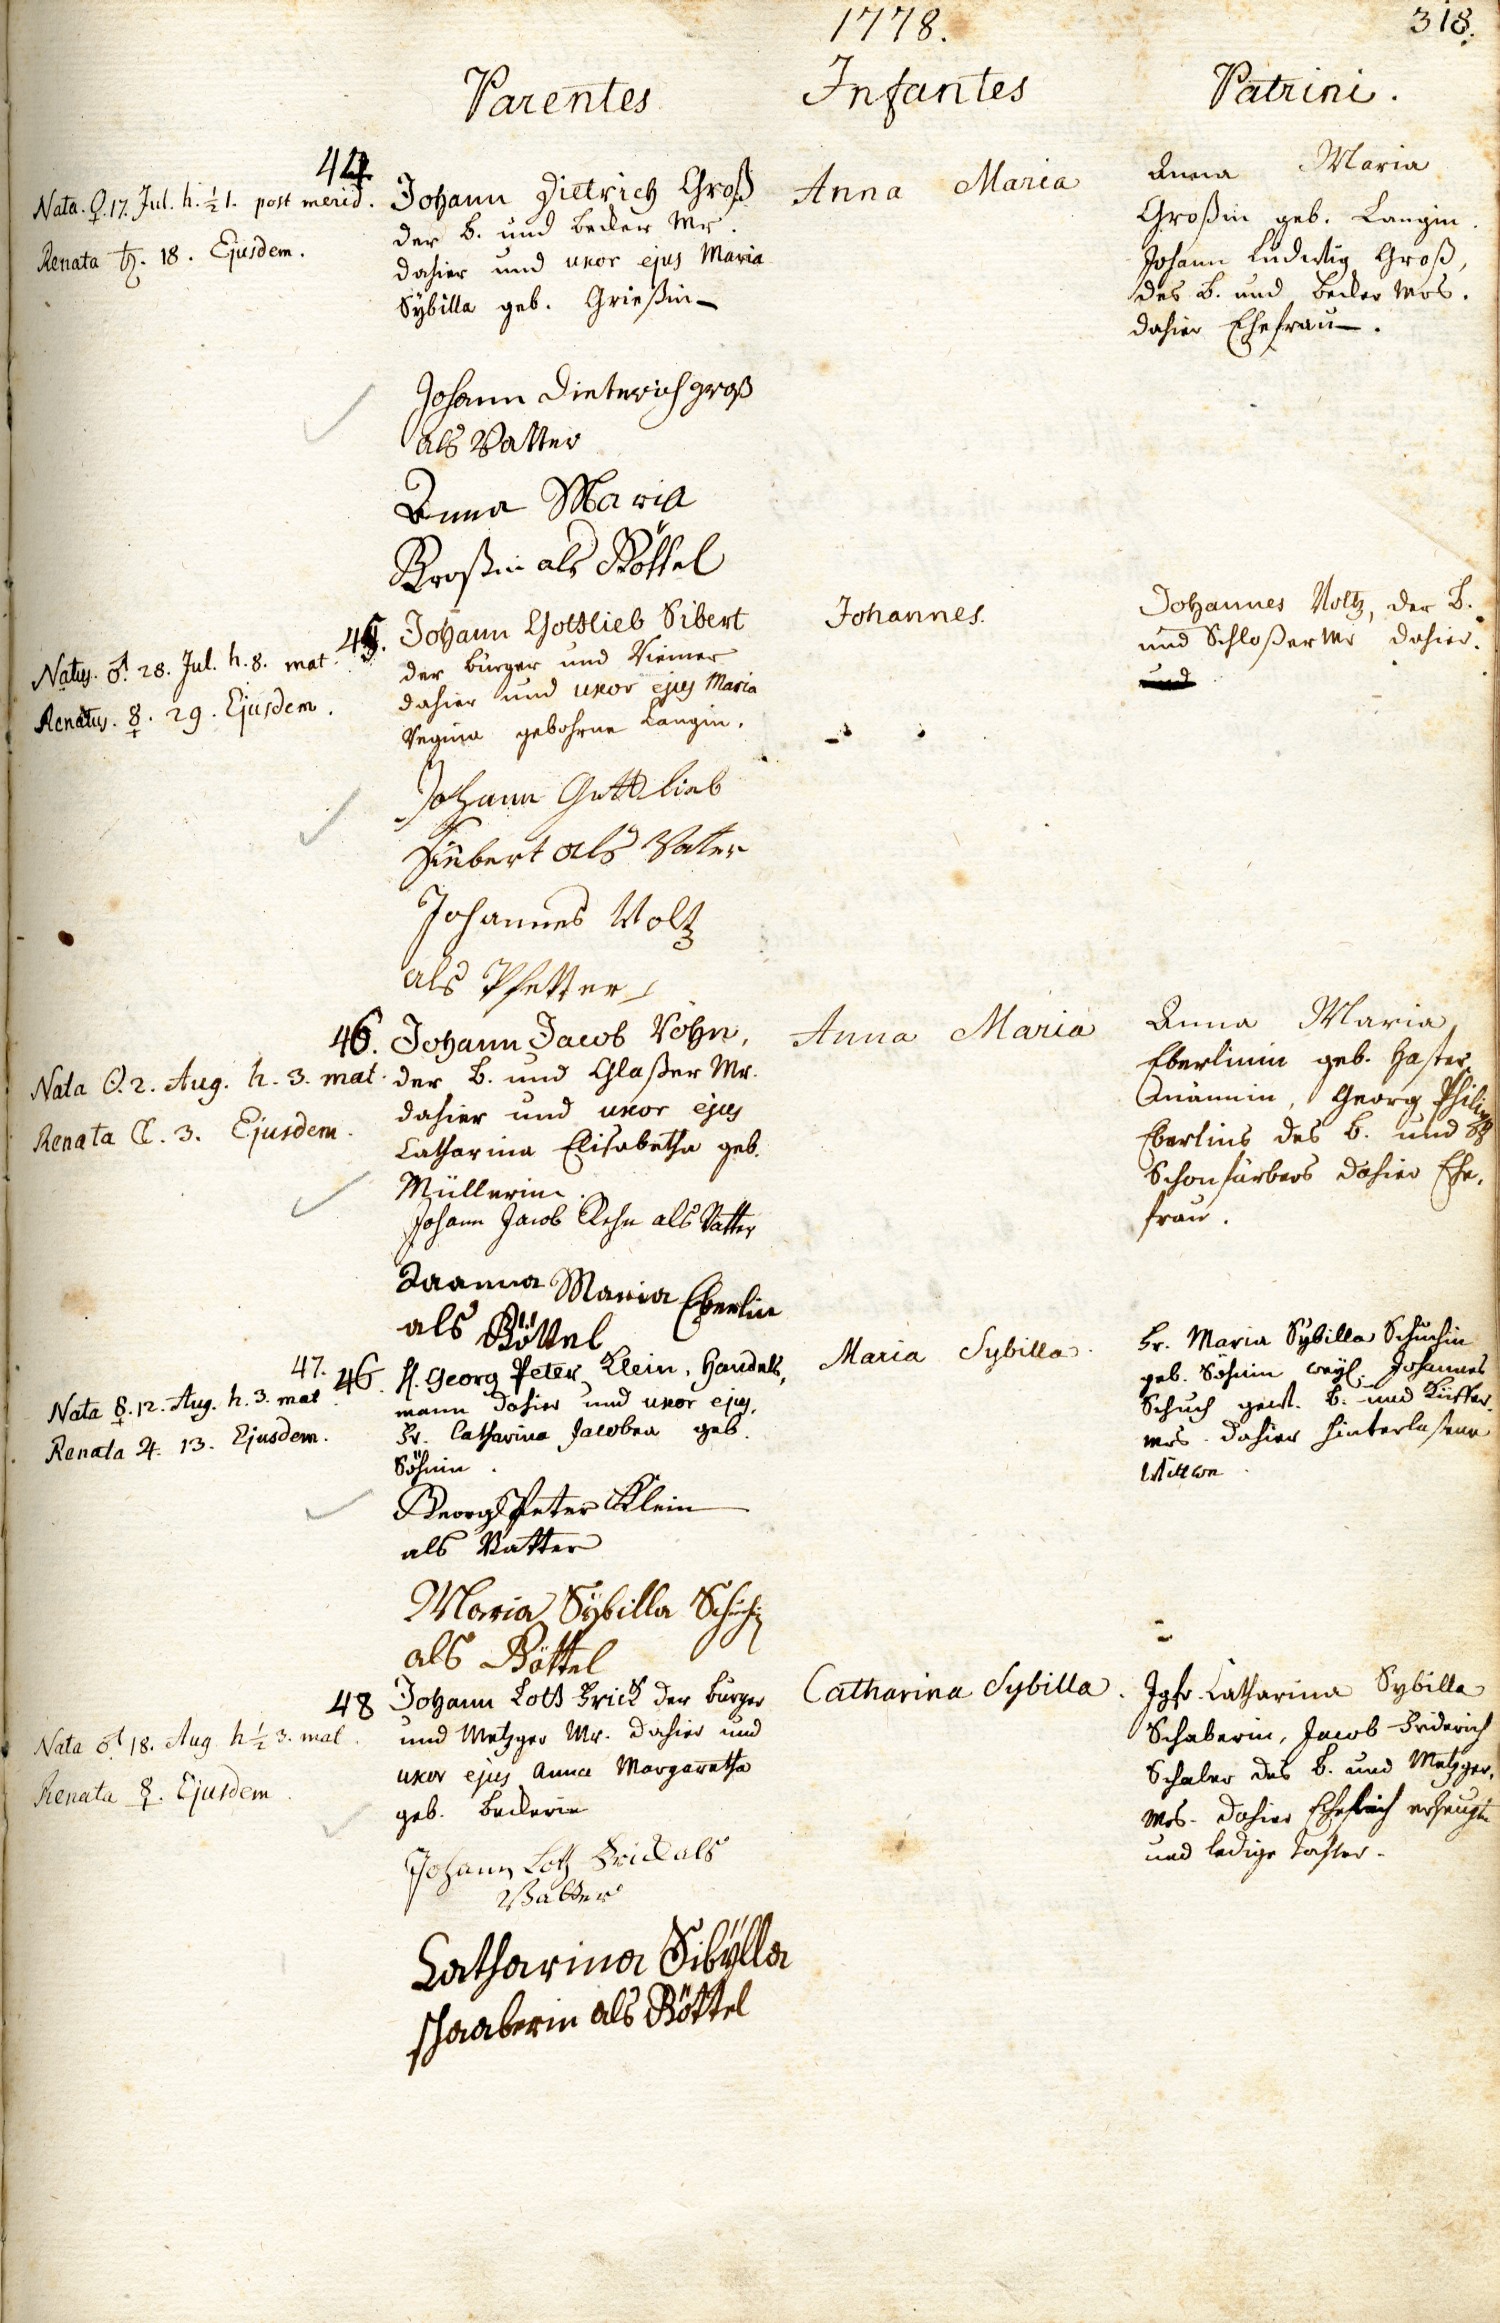 1778.
318.
Parentes
Infantes
Patrini.
44.
Nata. ♀. 17. Jul. h. ½ 1. post merid.
Renata ♄. 18. Ejusdem.
Johann Dietrich Groß
der B. und Becker Mr.
dahier und uxor ejus Maria
Sybilla geb. Grießin
Anna Maria
Anna Maria
Großin geb. Langin.
Johann Ludwig Groß,
des B. und Becker Mrs.
dahier Ehefrau.
Johann Dieterich groß
als Vatter
Anna Maria
Großin als Göttel
45.
Natus. ♂. 28. Jul. h. 8. mat.
Renatus. ☿. 29. Ejusdem.
Johann Gottlieb Sibert
der Burger und Riemer
dahier und uxor ejus Maria
Regina gebohrne Langin.
Johannes.
Johannes Voltz, der B.
und Schloßer Mr dahier.
Johann Gottlieb
Siebert als Vatter
Johannes Voltz
als Pfetter
46.
Nata ☉. 2. Aug. h. 3. mat.
Renata ☾. 3. Ejusdem.
Johann Jacob Röhn,
der B. und Glaßer Mr.
dahier und uxor ejus
Catharina Elisabetha geb.
Müllerin.
Anna Maria
Anna Maria
Eberlinin geb.
Georg Philipp
Eberlins des B. und
Schönfärbers dahier Ehe,
frau.
Johann Jacob Rehn als Vatter
Maria Eberlin
als Göttel
47.
46.
Nata ☿. 12. Aug. h. 3. mat
Renata ♃. 13. Ejusdem.
H. Georg Peter Klein, Handels,
mann dahier und uxor ejus,
Fr. Catharina Jacobea geb.
Söhnin.
Maria Sybilla.
Fr. Maria Sybilla Schuchin
geb. Söhnin weyl. Johannes
Schuch gewes. B. und Küffer,
mrs. dahier hinterlaßene
Wittwe.
Georg Peter Klein
als Vatter
Maria Sybilla Schuchin
als Göttel
48
Nata ♂ 18. Aug h ½ 3. mat.
Renata ☿. Ejusdem.
Johann Lotz Frick der Burger
und Metzger Mr. dahier und
uxor ejus Anna Margaretha
geb. Beckerin
Catharina Sybilla.
Jgfr. Catharina Sybilla
Schaberin, Jacob Friderich
Schaber des B. und Metzger,
mrs. dahier Ehelich erzeugte
und ledige Tochter.
Johann Lotz Frick als
Vatter
Catharina Sibÿlla
schaaberin als Göttel